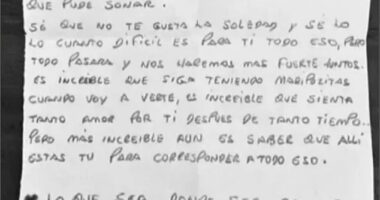 QUE PUDE SOÑAR.
SÉ QUE NO TE GUSTA LA SOLEDAD Y SÉ LO
LO CUANTO DIFÍCIL ES PARA TI TODO ESO, PERO
TODO PASARA Y NOS HAREMOS MAS FUERTE JUNTOS.
ES INCREIBLE QUE SIGA TENIENDO MARIPOSITAS
CUANDO VOY A VERTE, ES INCREIBLE QUE SIENTA
TANTO AMOR POR TI DESPUES DE TANTO TIEMPO..
PERO MAS INCREIBLE AUN ES SABER QUE ALLI
ESTAS TU PARA CORRESPONDER A TODO ESO.
LO QUE SEA, DONDE SEA